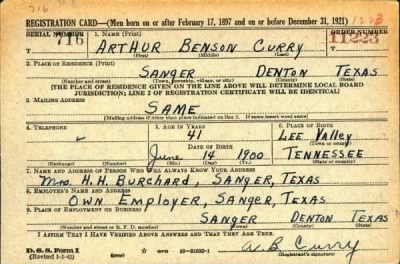 716
REGISTRATION CARD—(Men born on or after February 17, 1897 and on or before December 31, 1921)
SERIAL NUMBER 1. NAME (Print) ORDER NUMBER
716 ARTHUR BENSON CURRY 11223
(First) (Middle) (Last)
2. PLACE OF RESIDENCE (Print)
SANGER DENTON TEXAS
(Number and street) (Town, township, village, or city) (County) (State)
[THE PLACE OF RESIDENCE GIVEN ON THE LINE ABOVE WILL DETERMINE LOCAL BOARD
JURISDICTION; LINE 2 OF REGISTRATION CERTIFICATE WILL BE IDENTICAL]
3. MAILING ADDRESS
SAME
[Mailing address if other than place indicated on line 2. If same insert word same]
4. TELEPHONE 5. AGE IN YEARS 6. PLACE OF BIRTH
41 LEE VALLEY
DATE OF BIRTH (Town or county)
June 14 1900 TENNESSEE
(Exchange) (Number) (Mo.) (Day) (Yr.) (State or country)
7. NAME AND ADDRESS OF PERSON WHO WILL ALWAYS KNOW YOUR ADDRESS
Mrs. H.H. BURCHARD, SANGER, TEXAS
8. EMPLOYER'S NAME AND ADDRESS
OWN EMPLOYER, SANGER, TEXAS
9. PLACE OF EMPLOYMENT OR BUSINESS
SANGER DENTON TEXAS
(Number and street or R. F. D. number) (Town) (County) (State)
I AFFIRM THAT I HAVE VERIFIED ABOVE ANSWERS AND THAT THEY ARE TRUE.
D. S. S. Form 1
(Revised 1-1-42) GPO A. B. Curry